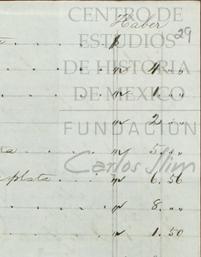 CENTRO DE
Haber
29
ESTUDIOS
DE HISTORIA
" 4 " "
DE MEXICO
" 1 " "
" 2 " "
FUNDACIÓN
Carlos Slim
plata " 6.50
" 8 " "
" 1.50